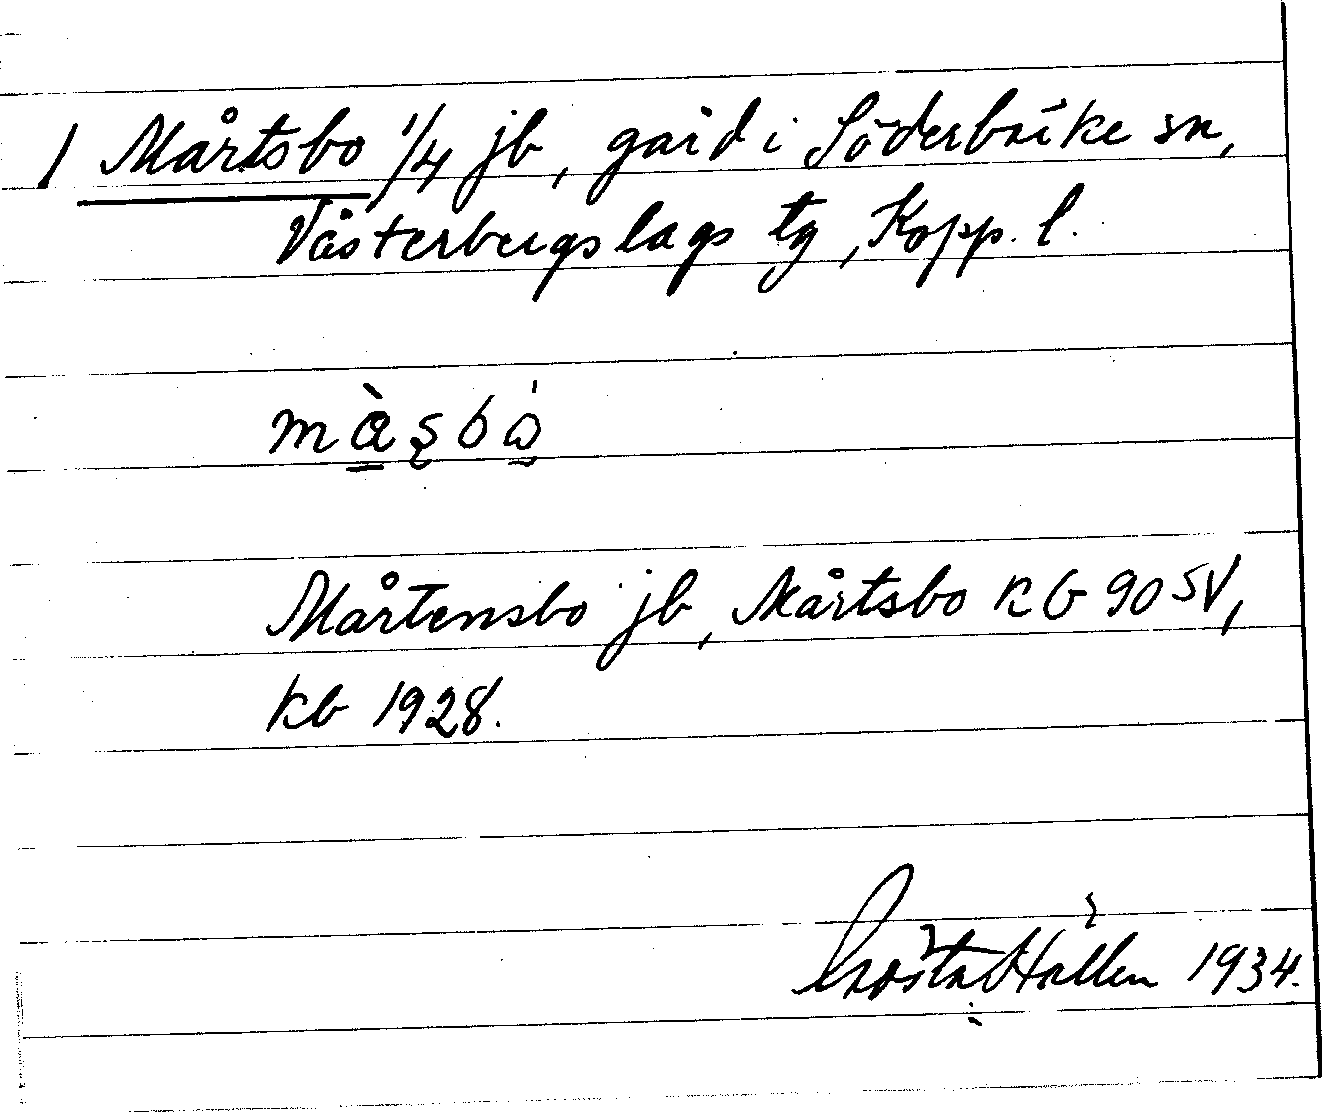 1 Mårtsbo 1/4 jb, gård i Söderbärke sn,
Västerbergslags tg, Kopp. l.
Mårtensbo jb, Mårtsbo KG 90 SV,
kb 1928.
Gösta Hallen 1934.